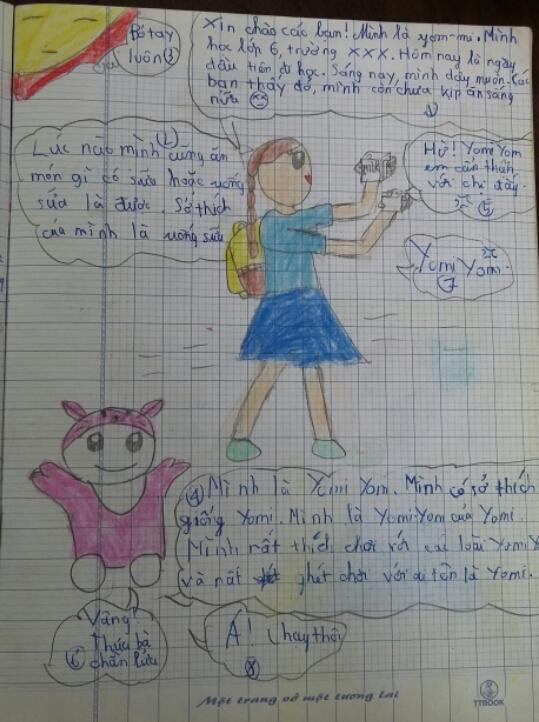 Bó tay
luôn 3
Xin chào các bạn! Mình là yom-mi. Mình
học lớp 6, trường XXX. Hôm nay là ngày
đầu tiên đi học. Sáng nay, mình dậy muộn. Các
bạn thấy đó, mình còn chưa kịp ăn sáng
nữa
1
2
Lúc nào mình cũng ăn
món gì có sữa hoặc uống
sữa là được. Sở thích
của mình là uống sữa
milk
Hừ! Yomi Yom
em cẩn thận
với chị đấy.
5
Yomi Yom
7
4 Mình là Yomi Yom. Mình có sở thích
giống Yomi. Mình là Yomi Yom của Yomi.
Mình rất thích chơi với các loài Yomi Y
và rất ghét chơi với ai tên là Yomi.
Vâng!
Thưa bà
6 chằn lửa
Á! Chạy thôi
8
Một trang vở một tương lai
TTBOOK